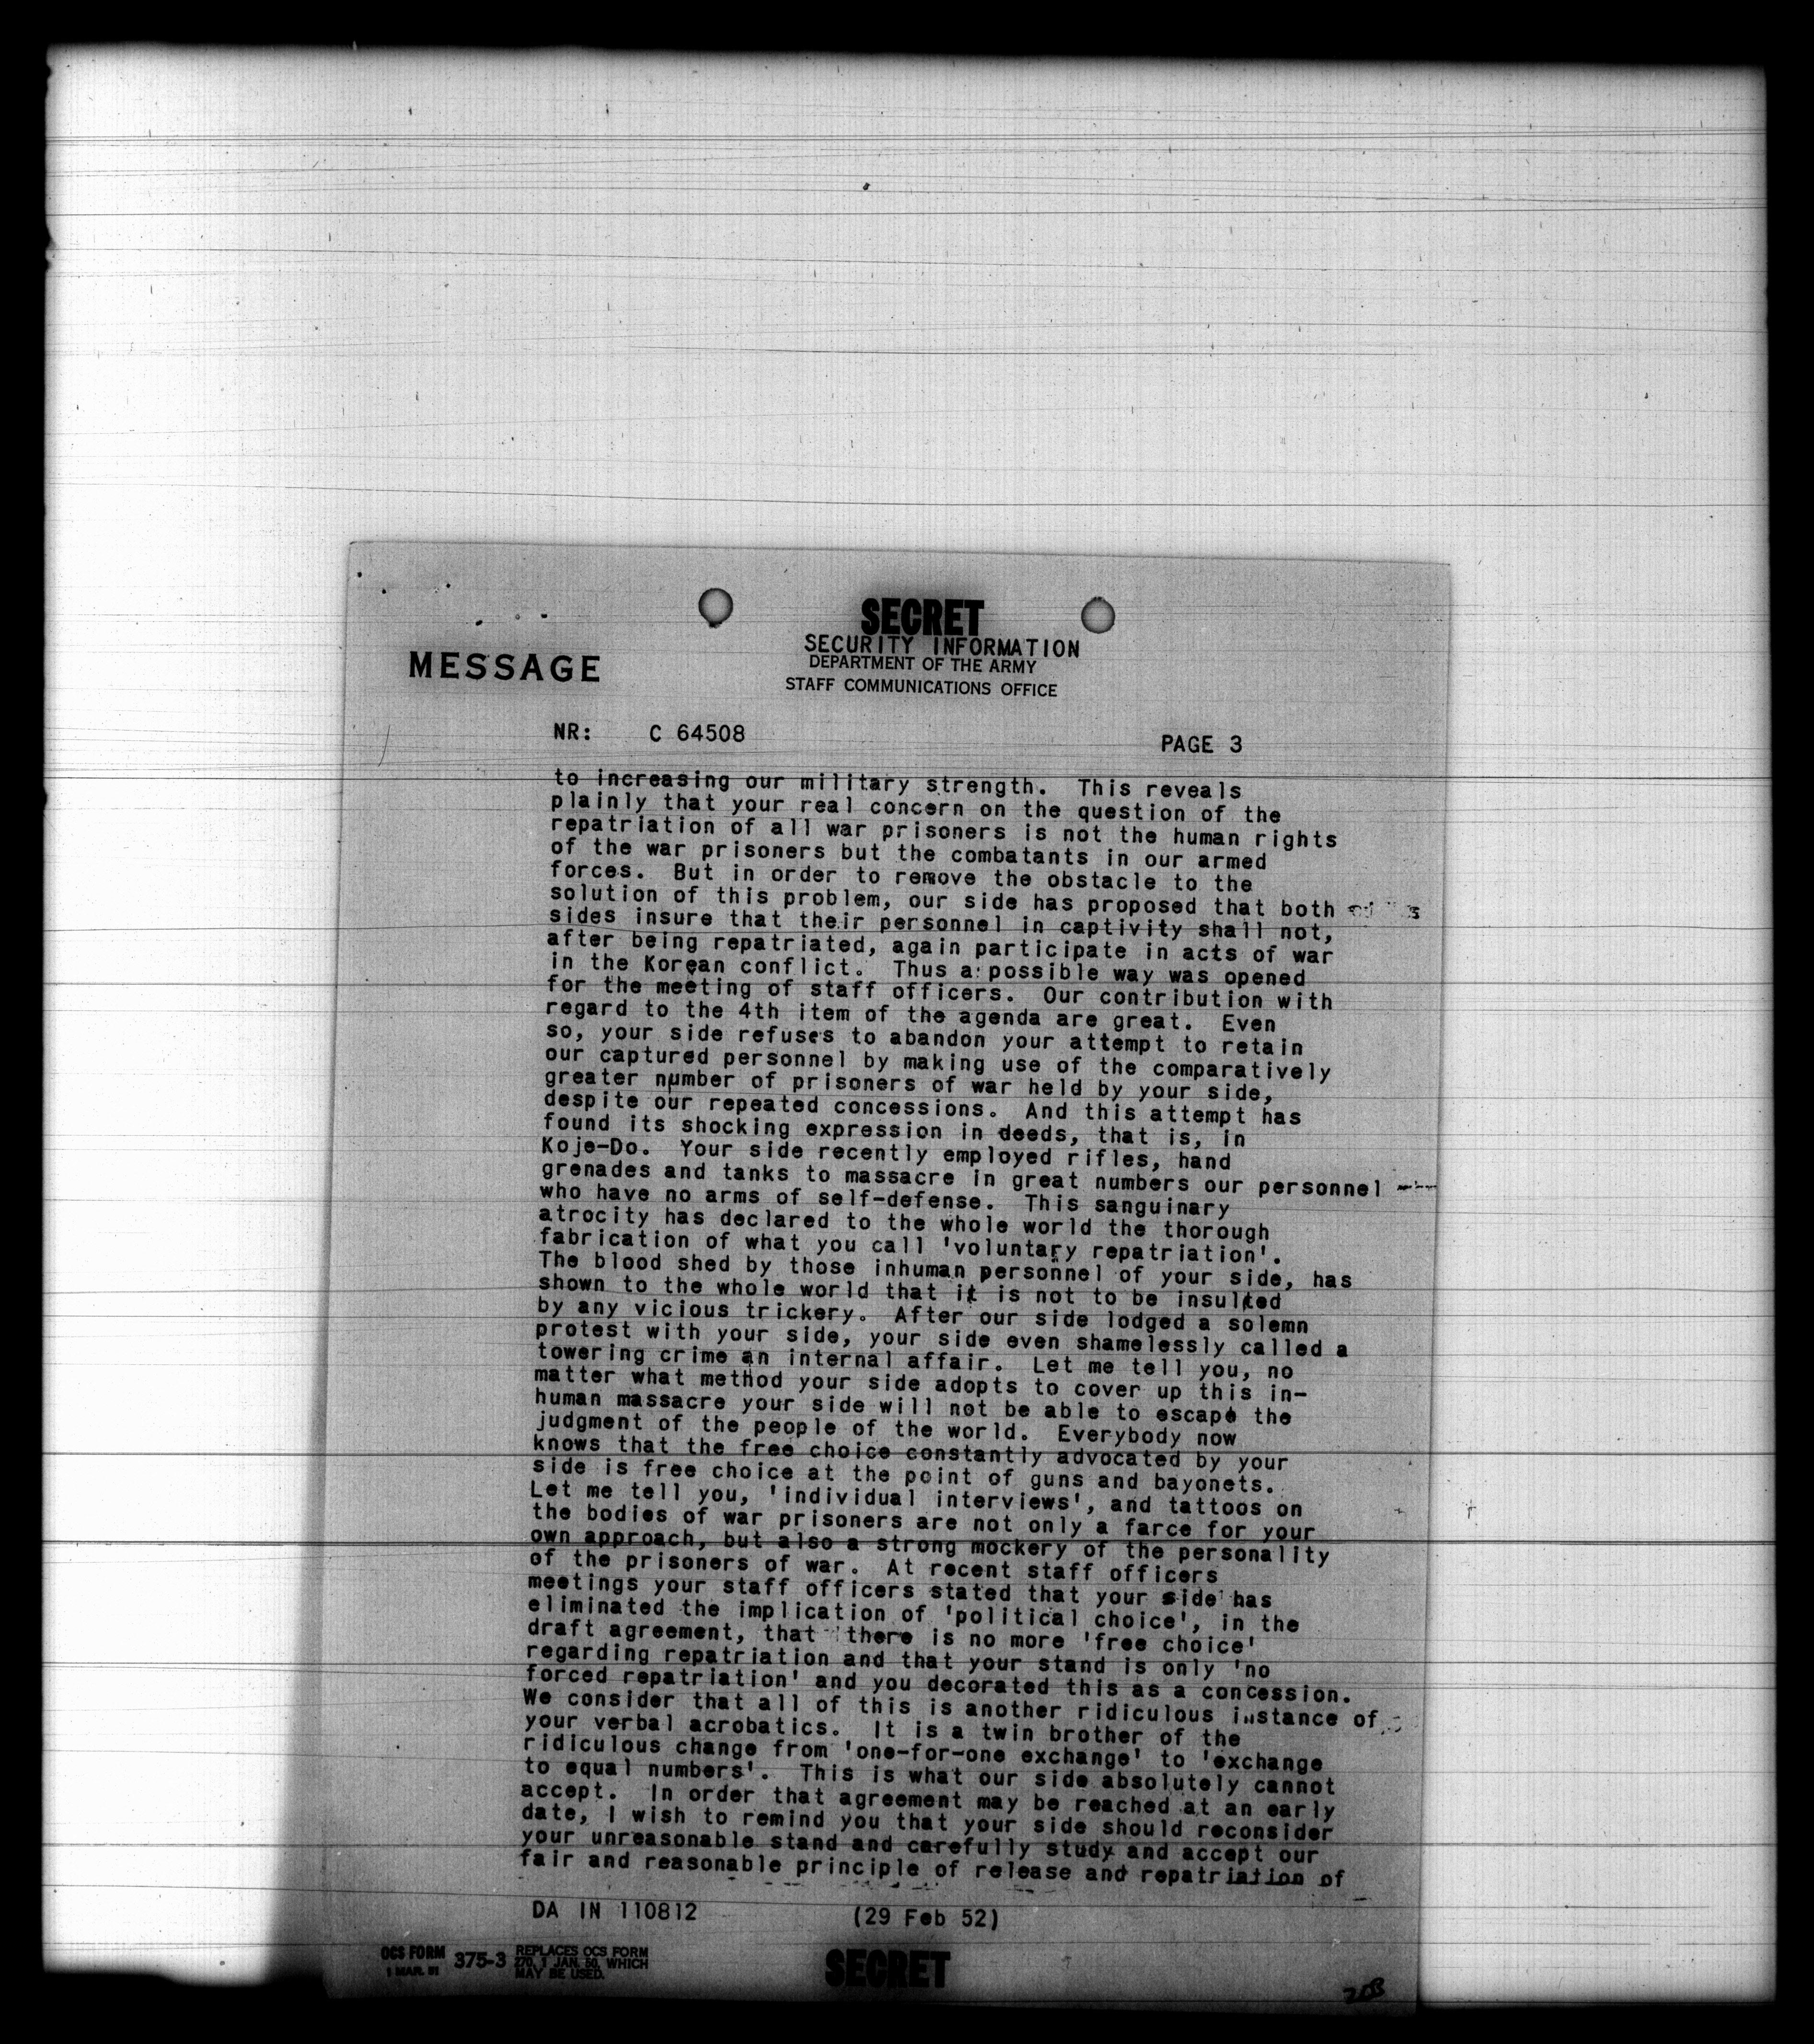 SECRET
SECURITY INFORMATION
MESSAGE
DEPARTMENT OF THE ARMY
STAFF COMMUNICATIONS OFFICE
NR: C 64508 PAGE 3
to increasing our military strength. This reveals
plainly that your real concern on the question of the
repatriation of all war prisoners is not the human rights
of the war prisoners but the combatants in our armed
forces. But in order to remove the obstacle to the
solution of this problem, our side has proposed that both
sides insure that their personnel in captivity shall not,
after being repatriated, again participate in acts of war
in the Korean conflict. Thus a possible way was opened
for the meeting of staff officers. Our contribution with
regard to the 4th item of the agenda are great. Even
so, your side refuses to abandon your attempt to retain
our captured personnel by making use of the comparatively
greater number of prisoners of war held by your side,
despite our repeated concessions. And this attempt has
found its shocking expression in deeds, that is, in
Koje-Do. Your side recently employed rifles, hand
grenades and tanks to massacre in great numbers our personnel
who have no arms of self-defense. This sanguinary
atrocity has declared to the whole world the thorough
fabrication of what you call 'voluntary repatriation'.
The blood shed by those inhuman personnel of your side, has
shown to the whole world that it is not to be insulted
by any vicious trickery. After our side lodged a solemn
protest with your side, your side even shamelessly called a
towering crime an internal affair. Let me tell you, no
matter what method your side adopts to cover up this in-
human massacre your side will not be able to escape the
judgment of the people of the world. Everybody now
knows that the free choice constantly advocated by your
side is free choice at the point of guns and bayonets.
Let me tell you, 'individual interviews', and tattoos on
the bodies of war prisoners are not only a farce for your
own approach, but also a strong mockery of the personality
of the prisoners of war. At recent staff officers
meetings your staff officers stated that your side has
eliminated the implication of 'political choice', in the
draft agreement, that there is no more 'free choice'
regarding repatriation and that your stand is only 'no
forced repatriation' and you decorated this as a concession.
We consider that all of this is another ridiculous instance of
your verbal acrobatics. It is a twin brother of the
ridiculous change from 'one-for-one exchange' to 'exchange
to equal numbers'. This is what our side absolutely cannot
accept. In order that agreement may be reached at an early
date, I wish to remind you that your side should reconsider
your unreasonable stand and carefully study and accept our
fair and reasonable principle of release and repatriation of
DA IN 110812 (29 Feb 52)
OCS FORM 375-3 REPLACES OCS FORM
1 MAR. 51 270, 1 JAN. 50, WHICH
MAY BE USED.
SECRET